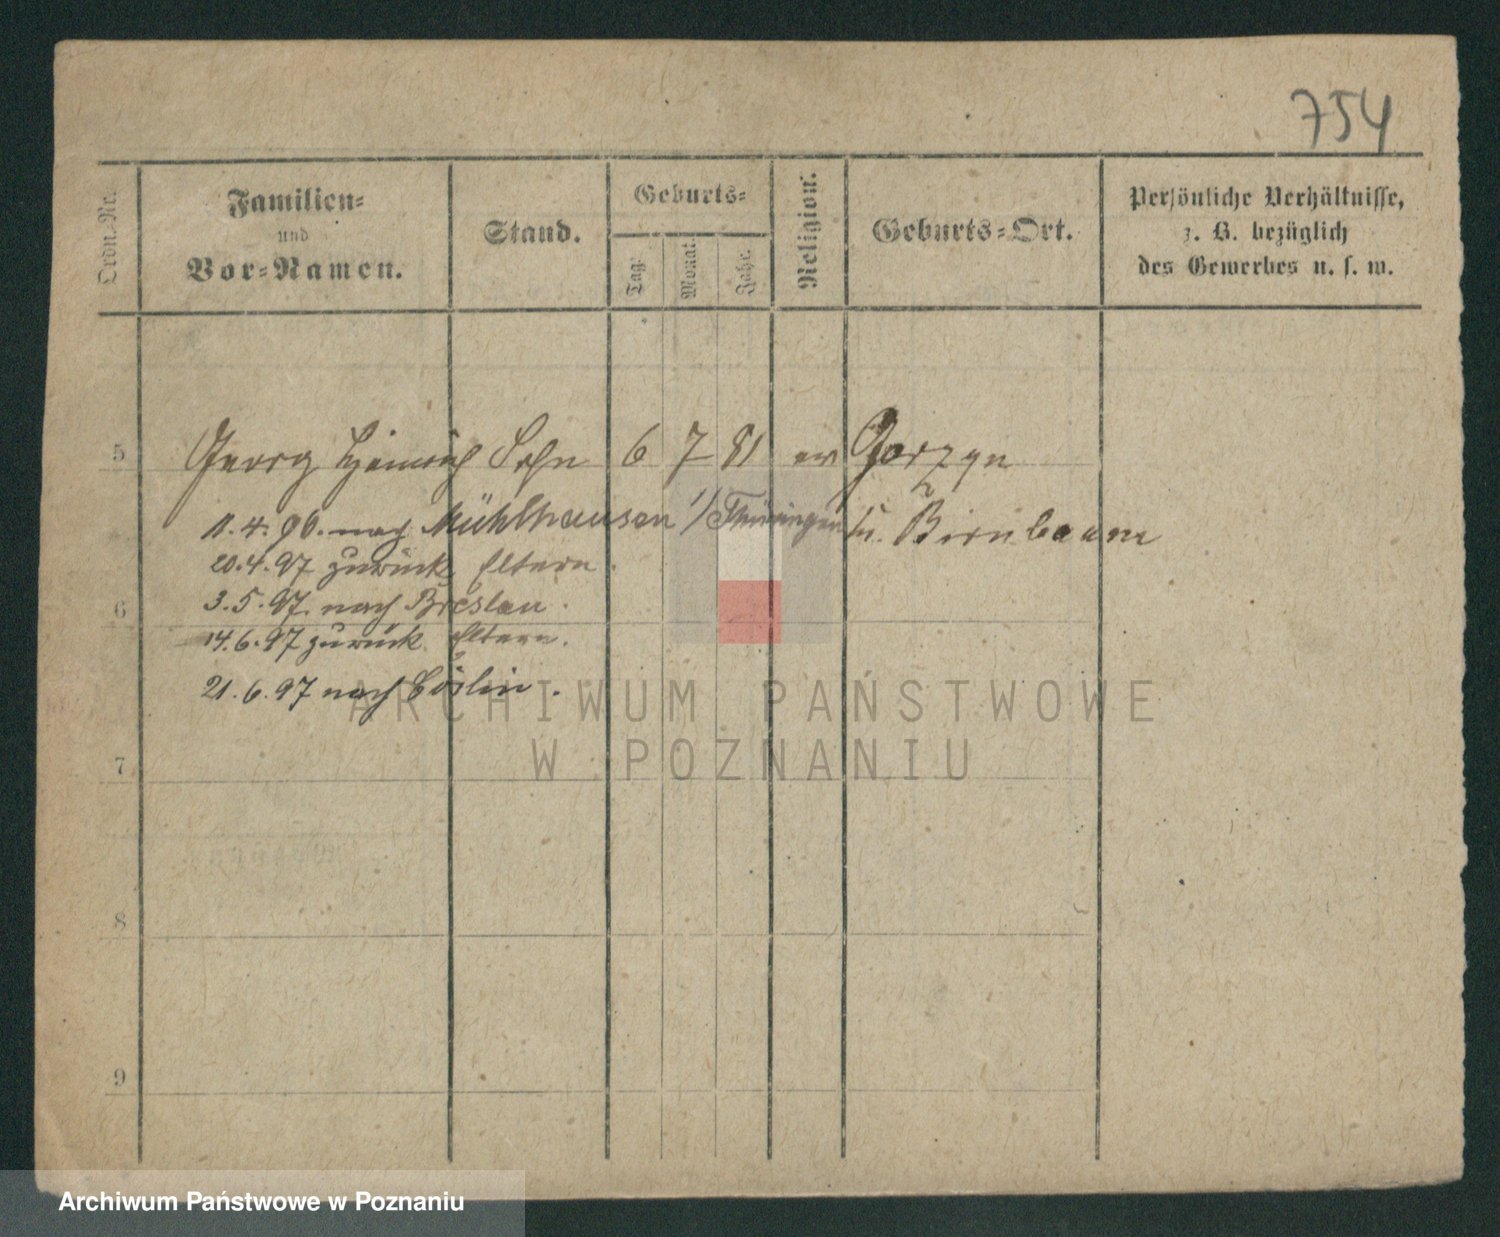 754
Ordn.-Nr.
Familien-
und
Vor-Namen.
Stand.
Geburts-
Tag.
Monat.
Jahr.
Religion.
Geburts-Ort.
Persönliche Verhältnisse,
z. B. bezüglich
des Gewerbes u. s. w.
5 Georg Heinrich Sohn 6 7 81 ev Gorzyn
11.4.96. nach Mühlhausen i/Thüringen
b. Birnbaum
20.4.97 zurück Eltern.
3.5.97. nach Breslau.
6
14.6.97 zurück Eltern.
21.6.97 nach Cöslin.
ARCHIWUM PAŃSTWOWE
W POZNANIU
7
8
9
Archiwum Państwowe w Poznaniu